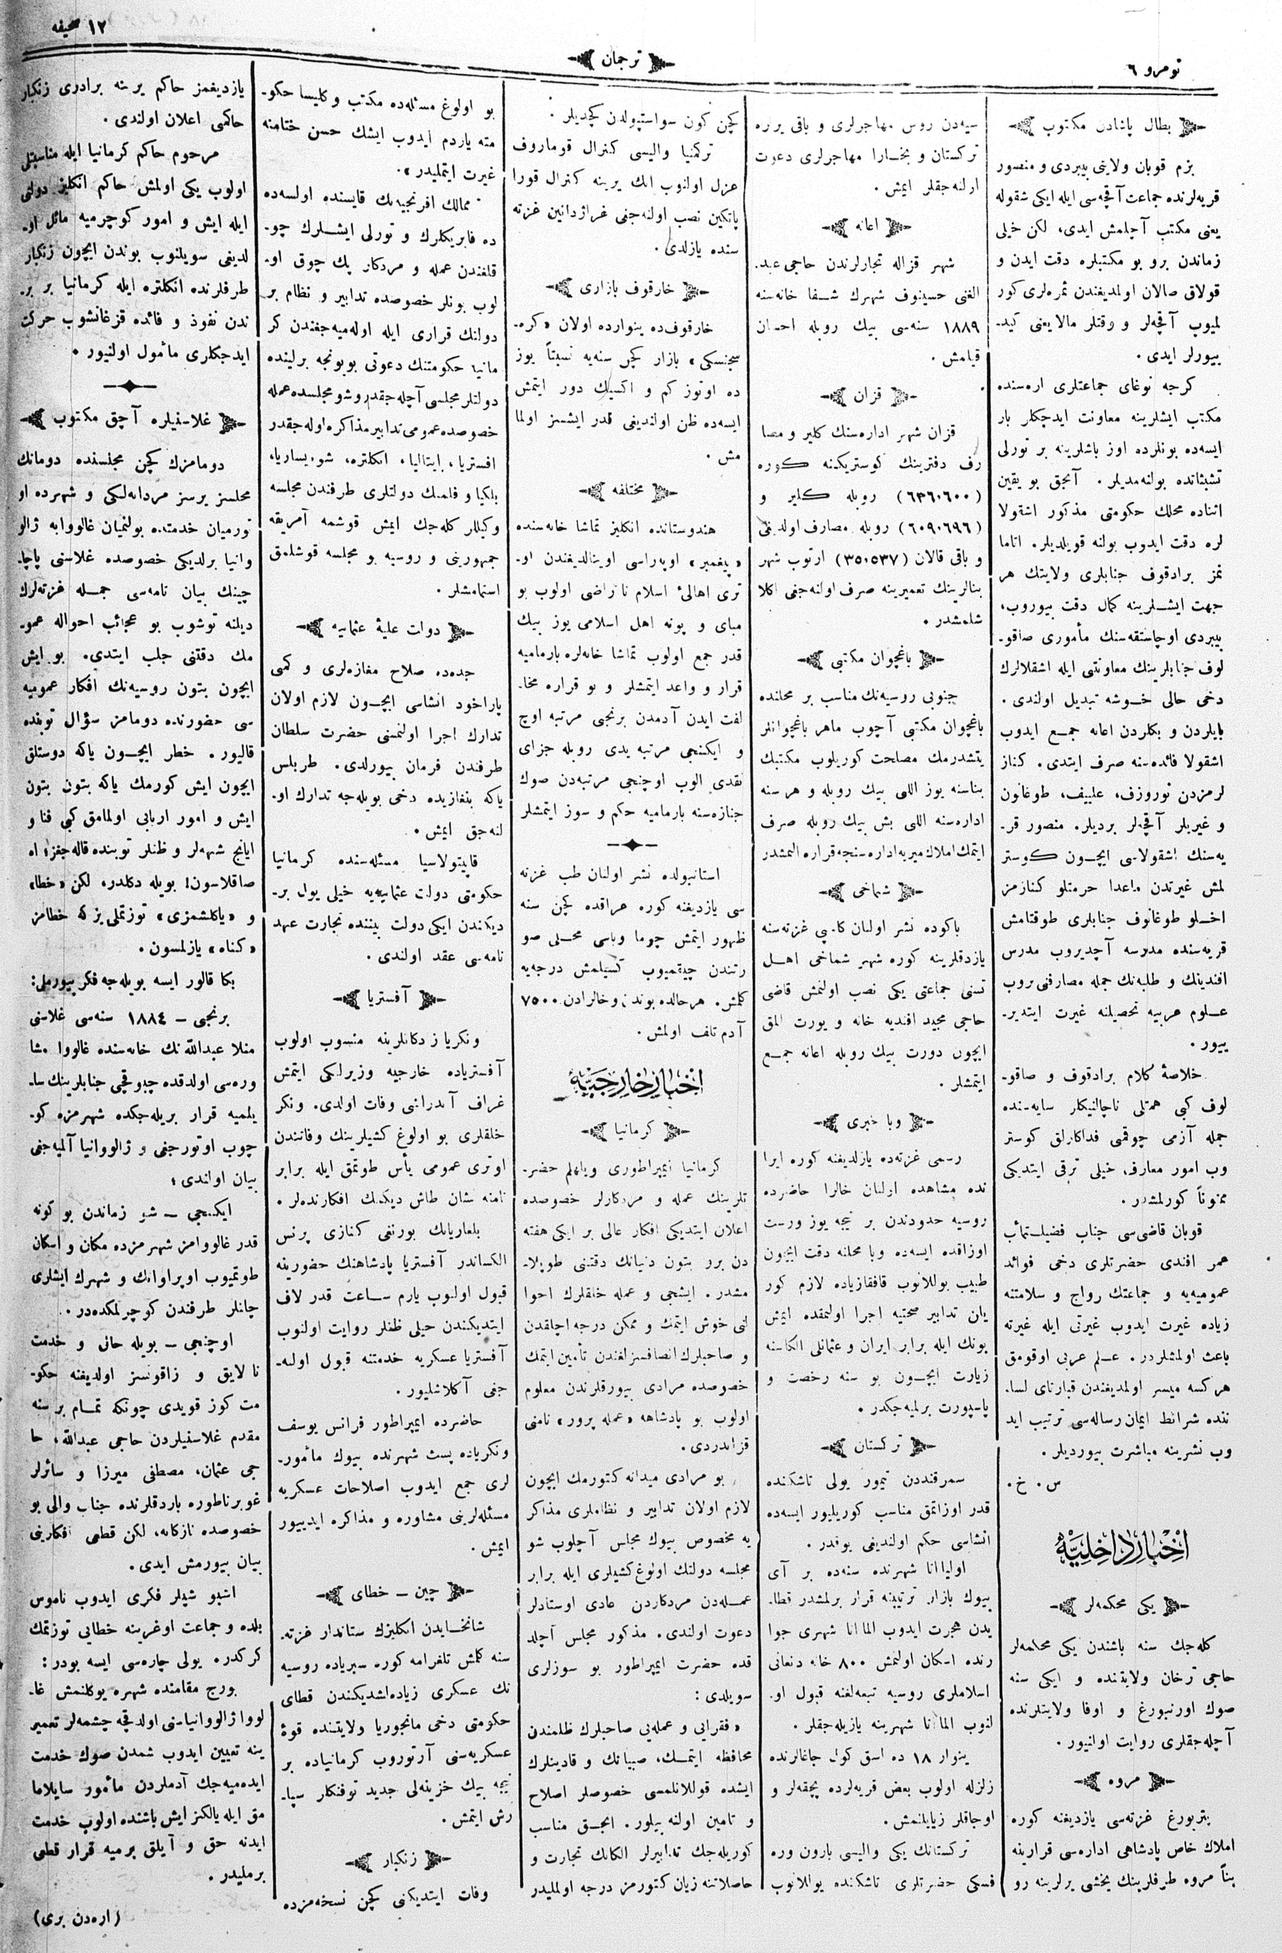 نومرو ٦
ترجمان
١٢ صحیفه
بطال پاشادن مكتوب
بزم قوبان ولایتی بیبردی و منصور
قریه‌لرنده جماعت آقچه‌سی ایله ایكی شقوله
یعنی مكتب آچلمش ایدی، لكن خیلی
زماندن برو بو مكتبلره دقت ایدن و
قولاق صالان اولمدیغندن ثمره‌لری كور
لمیوب آقچه‌لر و وقتلر مالایعنی كید-
ییورلر ایدی.
كرچه نوغای جماعتلری اره‌سنده
مكتب ایشلرینه معاونت ایدجكلر بار
ایسه‌ده بونلرده اوز باشلرینه بر تورلی
تشبثاتده بولنه‌مدیلر. آنجق بو یقین
اثناده محلك حكومتی مذكور اشقولا
لره دقت ایدوب بولنه قویلدیلر. اتاما
نمز برادقوف جنابلری ولایتك هر
جهت ایشلرینه كمال دقت بیوروب،
بیبردی اوچاستقه‌سنك مأموری صاقو-
لوف جنابلرینك معاونتی ایله اشقلالرك
دخی حالی خوشه تبدیل اولندی.
بایلردن و بكلردن اعانه جمع ایدوب
اشقولا فائده‌سنه صرف ایتدی. كناز
لرمزدن نوروزف، علییف، طوغانون
و غیریلر آقچه‌لر بردیلر. منصور قر-
یه‌سنك اشقولاسی ایچون كوستر
لمش غیرتدن ماعدا حرمتلو كنازمز
اخلو طوغانوف جنابلری طوقتامش
قریه‌سنده مدرسه آچدیروب مدرس
افندینك و طلبه‌نك جمله مصارفنی بروب
علوم عربیه تحصیلنه غیرت ایتدیر-
ییور.
خلاصهٔ كلام برادقوف و صاقو-
لوف كبی همتلی ناچالنیكلر سایه‌سنده
جمله آزمی چوقمی فداكارلق كوستر
وب امور معارف خیلی ترقی ایتدیكی
ممنوناً كورلمشدر.
قوبان قاضی‌سی جناب فضیلتمآب
عمر افندی حضرتلری دخی فوائد
عمومیه‌یه و جماعتك رواج و سلامتنه
زیاده غیرت ایدوب غیرتی ایله غیرته
باعث اولمشلردر. علم عربی اوقومق
هركسه میسر اولمدیغندن قبارتای لسا-
ننده شرائط ایمان رساله‌سی ترتیب اید
وب نشرینه مباشرت بیوردیلر.
س. خ.
اخبار داخلیه
یكی محكمه‌لر
كله‌جك سنه باشندن یكی محكمه‌لر
حاجی ترخان ولایتنده و ایكی سنه
صوك اورنبورغ و اوفا ولایتلرنده
آچله‌جقلری روایت اولنیور.
مروه
پتربورغ غزته‌سی یازدیغنه كوره
املاك خاص پادشاهی اداره‌سی قرارینه
بناً مروه طرفلرینك یخشی یرلرینه رو
سیه‌دن روس مهاجرلری و باقی یرلره
تركستان و بخارا مهاجرلری دعوت
اولنه‌جقلر ایمش.
اعانه
شهر قزاله تجارلرندن حاجی عبد-
الغنی حسینوف شهرك شفا خانه‌سنه
١٨٨٩ سنه‌سی بیك روبله احسان
قیلمش.
قزان
قزان شهر اداره‌سنك كلیر و مصا
رف دفترینك كوستریكنه كوره
(٦٣٦،٦٠٠) روبله كلیر و
(٦٠٩،٦٩٦) روبله مصارف اولدیغی
و باقی قالان (٣٥،٥٣٧) ارتوب شهر
بنالرینك تعمیرینه صرف اولنه‌جغی اكلا
شلمشدر.
باغچوان مكتبی
جنوبی روسیه‌نك مناسب بر محلنده
باغچوان مكتبی آچوب ماهر باغچوانلر
یتشدرمك مصلحت كوریلوب مكتبك
بناسنه یوز اللی بیك روبله و هر سنه
اداره‌سنه اللی بش بیك روبله صرف
ایتمك املاك میریه اداره‌سنجه قراره النمشدر
شماخی
باكوده نشر اولنان كاسپی غزته‌سنه
یازدقلرینه كوره شهر شماخی اهل
تسنی جماعتی یكی نصب اولنمش قاضی
حاجی مجید افندیه خانه و یورت المق
ایچون دورت بیك روبله اعانه جمع
ایتمشلر.
وبا خبری
رسمی غزته‌ده یازلدیغنه كوره ایرا
نده مشاهده اولنان خالرا حاضرده
روسیه حدودندن بر نیجه یوز ورست
اوزاقده ایسه‌ده وبا محلنه دقت ایچون
طبیب یوللانوب قافقازیاده لازم كور
یان تدابیر صحیه اجرا اولنمقده ایمش
بونك ایله برابر ایران و عثمانلی الكاسنه
زیارت ایچون بو سنه رخصت و
پاسپورت برلمیه‌جكدر.
تركستان
سمرقنددن تیمور یولی تاشكنده
قدر اوزاتمق مناسب كوریلیور ایسه‌ده
انشاسی حكم اولندیغی یوقدر.
اولیااتا شهرنده سنه‌ده بر آی
بیوك بازار ترتیبنه قرار برلمشدر قطا-
یدن هجرت ایدوب الماتا شهری جوا
رنده اسكان اولنمش ٨٠٠ خانه دنغانی
اسلاملری روسیه تبعه‌لغنه قبول او-
لنوب الماتا شهرینه یازیله‌جقلر.
ینوار ١٨ ده اسق كول جاغالرنده
زلزله اولوب بعض قریه‌لرده بچقه‌لر و
اوجاقلر زیانلنمش.
تركستانك یكی والیسی بارون وره
فسكی حضرتلری تاشكنده یوللانوب
كچن كون سواستپولدن كچدیلر.
تركمنیا والیسی كنرال قوماروف
عزل اولنوب انك یرینه كنرال قورا
پاتكین نصب اولنه‌جغی غراژدانین غزته
سنده یازلدی.
خارقوف بازاری
خارقوف‌ده ینوارده اولان «كره-
سچنسكی» بازار كچن سنه‌یه نسبتاً یوز
ده اوتوز كم و اكسیك دور ایتمش
ایسه‌ده ظن اولندیغی قدر ایشسز اولما
مش.
مختلفه
هندوستانده انكلیز تماشا خانه‌سنده
«پیغمبر» اوپه‌راسی اوینالدیغندن او-
تری اهالیٔ اسلام ناراضی اولوب بو
مبای و پونه اهل اسلامی یوز بیك
قدر جمع اولوب تماشا خانه‌لره بارمامیه
قرار و واعد ایتمشلر و بو قراره مخا-
لفت ایدن آدمدن برنجی مرتبه اوچ
و ایكنجی مرتبه یدی روبله جزای
نقدی الوب اوچنجی مرتبه‌دن صوك
جنازه‌سنه بارمامیه حكم و سوز ایتمشلر
استانبولده نشر اولنان طب غزته
سی یازدیغنه كوره عراقده كچن سنه
ظهور ایتمش چوما وباسی محلی صو
رتندن چیقمیوب كسیلمش درجه‌یه
كلمش. هرحالده بوندن و خالرادن ٧٥٠٠
آدم تلف اولمش.
اخبار خارجیه
كرمانیا
كرمانیا ایمپراطوری ویلهلم حضر-
تلرینك عمله و مردكارلر خصوصده
اعلان ایتدیكی افكار عالی بر ایكی هفته
دن برو بتون دنیانك دقتنی طوپلا-
مشدر. ایشجی و عمله خلقلرك احوا
لنی خوش ایتمك و ممكن درجه اچلقدن
و صاحبلرك انصافسزلغندن تأمین ایتمك
خصوصده مرادی بیورقلرندن معلوم
اولوب بو پادشاهه «عمله پرور» نامنی
قزاندردی.
بو مرادی میدانه كتورمك ایچون
لازم اولان تدابیر و نظاملری مذاكر
یه مخصوص بیوك مجلس آچلوب شو
مجلسه دولتك اولوغ كشیلری ایله برابر
عمله‌دن مردكاردن عادی اوستادلر
دعوت اولندی. مذكور مجلس آچلد
قده حضرت ایمپراطور بو سوزلری
سویلدی:
«فقرایی و عمله‌یی صاحبلرك ظلمندن
محافظه ایتمك، صبیانك و قادینلرك
ایشده قوللانلمسی خصوصلر اصلاح
و تامین اولنه بیلور. انجق مناسب
كوریله‌جك تدابیرلر الكانك تجارت و
حاصلاتنه زیان كتورمز درجه اولملیدر
بو اولوغ مسئله‌ده مكتب و كلیسا حكو-
مته یاردم ایدوب ایشك حسن ختامنه
غیرت ایتملیدر».
ممالك افرنجیه‌نك قایسنده اولسه‌ده
ده فابریكلرك و تورلی ایشلرك چو-
قلغندن عمله و مردكار پك چوق او-
لوب بونلر خصوصده تدابیر و نظام بر
دولتك قراری ایله اوله‌میه‌جغندن كر
مانیا حكومتنك دعوتی بویونجه برلینده
دولتلر مجلسی آچله‌جقدر و شو مجلسده عمله
خصوصده عمومی تدابیر مذاكره اوله‌جقدر
افستریا، ایتالیا، انكلتره، شویساریا،
بلكیا و فلمنك دولتلری طرفندن مجلسه
وكیللر كله‌جك ایمش قوشمه آمریقه
جمهوریتی و روسیه بو مجلسه قوشلمق
استمامشلر.
دولت علیهٔ عثمانیه
جده‌ده سلاح مغازه‌لری و كمی
یاراخود انشاسی ایچون لازم اولان
تدارك اجرا اولنمسنی حضرت سلطان
طرفندن فرمان بیورلدی. طربلس
یاكه بنغازیده دخی بویله‌جه تدارك او-
لنه‌جق ایمش.
قاپیتولاسیا مسئله‌سنده كرمانیا
حكومتی دولت عثمانیه‌یه خیلی یول بر-
دیكندن ایكی دولت بیننده تجارت عهد
نامه‌سی عقد اولندی.
آفستریا
ونكریا زدكانلرینه منسوب اولوب
آفستریاده خارجیه وزیرلكی ایتمش
غراف آندراشی وفات اولدی. ونكر
خلقلری بو اولوغ كشیلرینك وفاتندن
اوتری عمومی یأس طوتمق ایله برابر
نامنه نشان طاش دیكمك افكارنده‌لر.
بلغاریانك بورنغی كنازی پرنس
الكساندر آفستریا پادشاهنك حضورینه
قبول اولنوب یارم ساعت قدر لاف
ایتدیكندن خیلی ظنلر روایت اولنوب
آفستریا عسكریه خدمتنه قبول اولنه-
جغی آكلاشلیور.
حاضرده ایمپراطور فرانس یوسف
ونكریاده پست شهرنده بیوك مأمور-
لری جمع ایدوب اصلاحات عسكریه
مسئله‌لرینی مشاوره و مذاكره ایدییور
ایمش.
چین - خطای
شانخایدن انكلیزك ستاندارد غزته-
سنه كلمش تلغرامه كوره سبریاده روسیه
نك عسكری زیاده‌لشدیكندن قطای
حكومتی دخی مانجوریا ولایتنده قوهٔ
عسكریه‌سنی آرتوروب كرمانیاده بر
نیچه بیك خزینه‌لی جدید توفنكلر سپا-
رش ایتمش.
زنكبار
وفات ایتدیكنی كچن نسخه‌مزده
یازدیغمز حاكم یرینه برادری زنكبار
حاكمی اعلان اولندی.
مرحوم حاكم كرمانیا ایله مناسبتلی
اولوب یكی اولمش حاكم انكلیز دولتی
ایله ایش و امور كوچرمیه مائل او-
لدیغی سویلنوب بوندن ایچون زنكبار
طرفلرنده انكلتره ایله كرمانیا بر بر-
ندن نفوذ و فائده قزغانشوب حركت
ایدجكلری مأمول اولنیور.
غلاسنیلره آچق مكتوب
دومامزك كچن مجلسنده دومانك
مجلسز یرسز مردانه‌لكی و شهرده او
تورمیان خدمتده بولنمیان غالووایه ژالو
وانیا برلدیكی خصوصده غلاسنی پاچا-
چینك بیان نامه‌سی جمله غزته‌لرك
دیلنه توشوب بو عجائب احواله عمو-
مك دقتنی جلب ایتدی. بو ایش
ایچون بتون روسیه‌نك افكار عمومیه
سی حضورنده دومامز سؤال توبنده
قالیور. خطر ایچون یاكه دوستلق
ایچون ایش كورمك یاكه بتون بتون
ایش و امور اربابی اولمامق كبی فنا و
ایانج شبهه‌لر و ظنلر توبنده قاله‌جغز، اه
صاقلاسون! بویله دكلدر، لكن «خطا»
و «یاكلشمزی» توزتملی یز كه خطامز
«كناه» یازلمسون.
بكا قالور ایسه بویله‌جه فكر بیورملی:
برنجی - ١٨٨٤ سنه‌سی غلاسنی
منلا عبدالله نك خانه‌سنده غالووا مشا
وره‌سی اولدقده چپوقچی جنابلرینك سا-
یلمیه قرار بریله‌جكده شهرمزه كو-
چوب اوتورجغی و ژالووانیا آلمیه‌جغی
بیان اولندی؛
ایكنجی - شو زماندن بو كونه
قدر غالووامز شهرمزده مكان و اسكان
طوتمیوب اوپراوانك و شهرك ایشلری
چانلر طرفندن كوچرلمكده‌در.
اوچنجی - بویله حالی و خدمت
نالایق و زاقونسز اولدیغنه حكو-
مت كوز قویدی چونكه تمام بر سنه
مقدم غلاسنیلردن حاجی عبدالله، حا
جی عثمان، مصطفی میرزا و سائرلر
غوبرناطوره باردقلرنده جناب والی بو
خصوصده نازكانه، لكن قطعی افكارینی
بیان بیورمش ایدی.
اشبو شیلر فكری ایدوب ناموس
بلده و جماعت اوغرینه خطایی توزتمك
كركدر. یولی چاره‌سی ایسه بودر:
بورج مقامنده شهره یوكلنمش غا-
لووا ژالووانیاسنی اولدقجه چشمه‌لر تعمیر
ینه تعیین ایدوب شمدن صوك خدمت
ایده‌میه‌جك آدملردن مأمور سایلاما
مق ایله یالكز ایش باشنده اولوپ خدمت
ایدنه حق و آیلق برمیه قرار قطعی
برملیدر.
(اره‌دن بری)